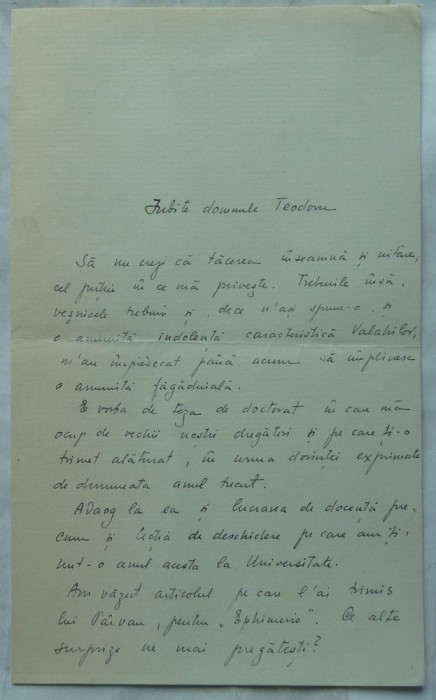 Iubite domnule Teodoru
Să nu crezi că tăcerea înseamnă și uitare,
cel puțin în ce mă privește. Treburile însă,
veșnicele treburi și, dece n'ași spune-o, și
o anumită indolență caracteristică Valahilor,
m'au împiedecat până acum să împlinesc
o anumită făgăduială.
E vorba de teza de doctorat în care mă
ocup de vechii noștri dregători și pe care ți-o
trimet alăturat, în urma dorinței exprimate
de dumneata anul trecut.
Adaog la ea și lucrarea de docență pre-
cum și lecția de deschidere pe care am ți-
nut-o anul acesta la Universitate.
Am văzut articolul pe care l'ai trimis
lui Pârvan, pentru „Ephimeris". Ce alte
surprize ne mai pregătești?